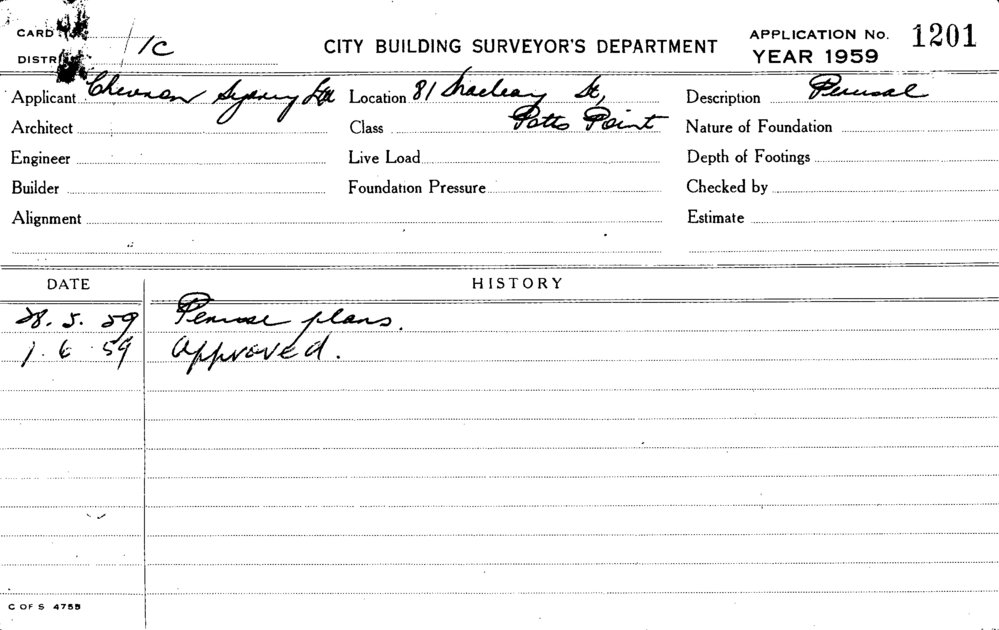 CARD
DISTR
/1C
CITY BUILDING SURVEYOR'S DEPARTMENT
APPLICATION No. 1201
YEAR 1959
Applicant Chevron Sydney Ltd Location 81 Macleay St, Description Perusal
Architect Class Potts Point Nature of Foundation
Engineer Live Load Depth of Footings
Builder Foundation Pressure Checked by
Alignment Estimate
DATE HISTORY
28. 5. 59 Peruse plans.
1. 6 59 Approved.
C OF S 4755